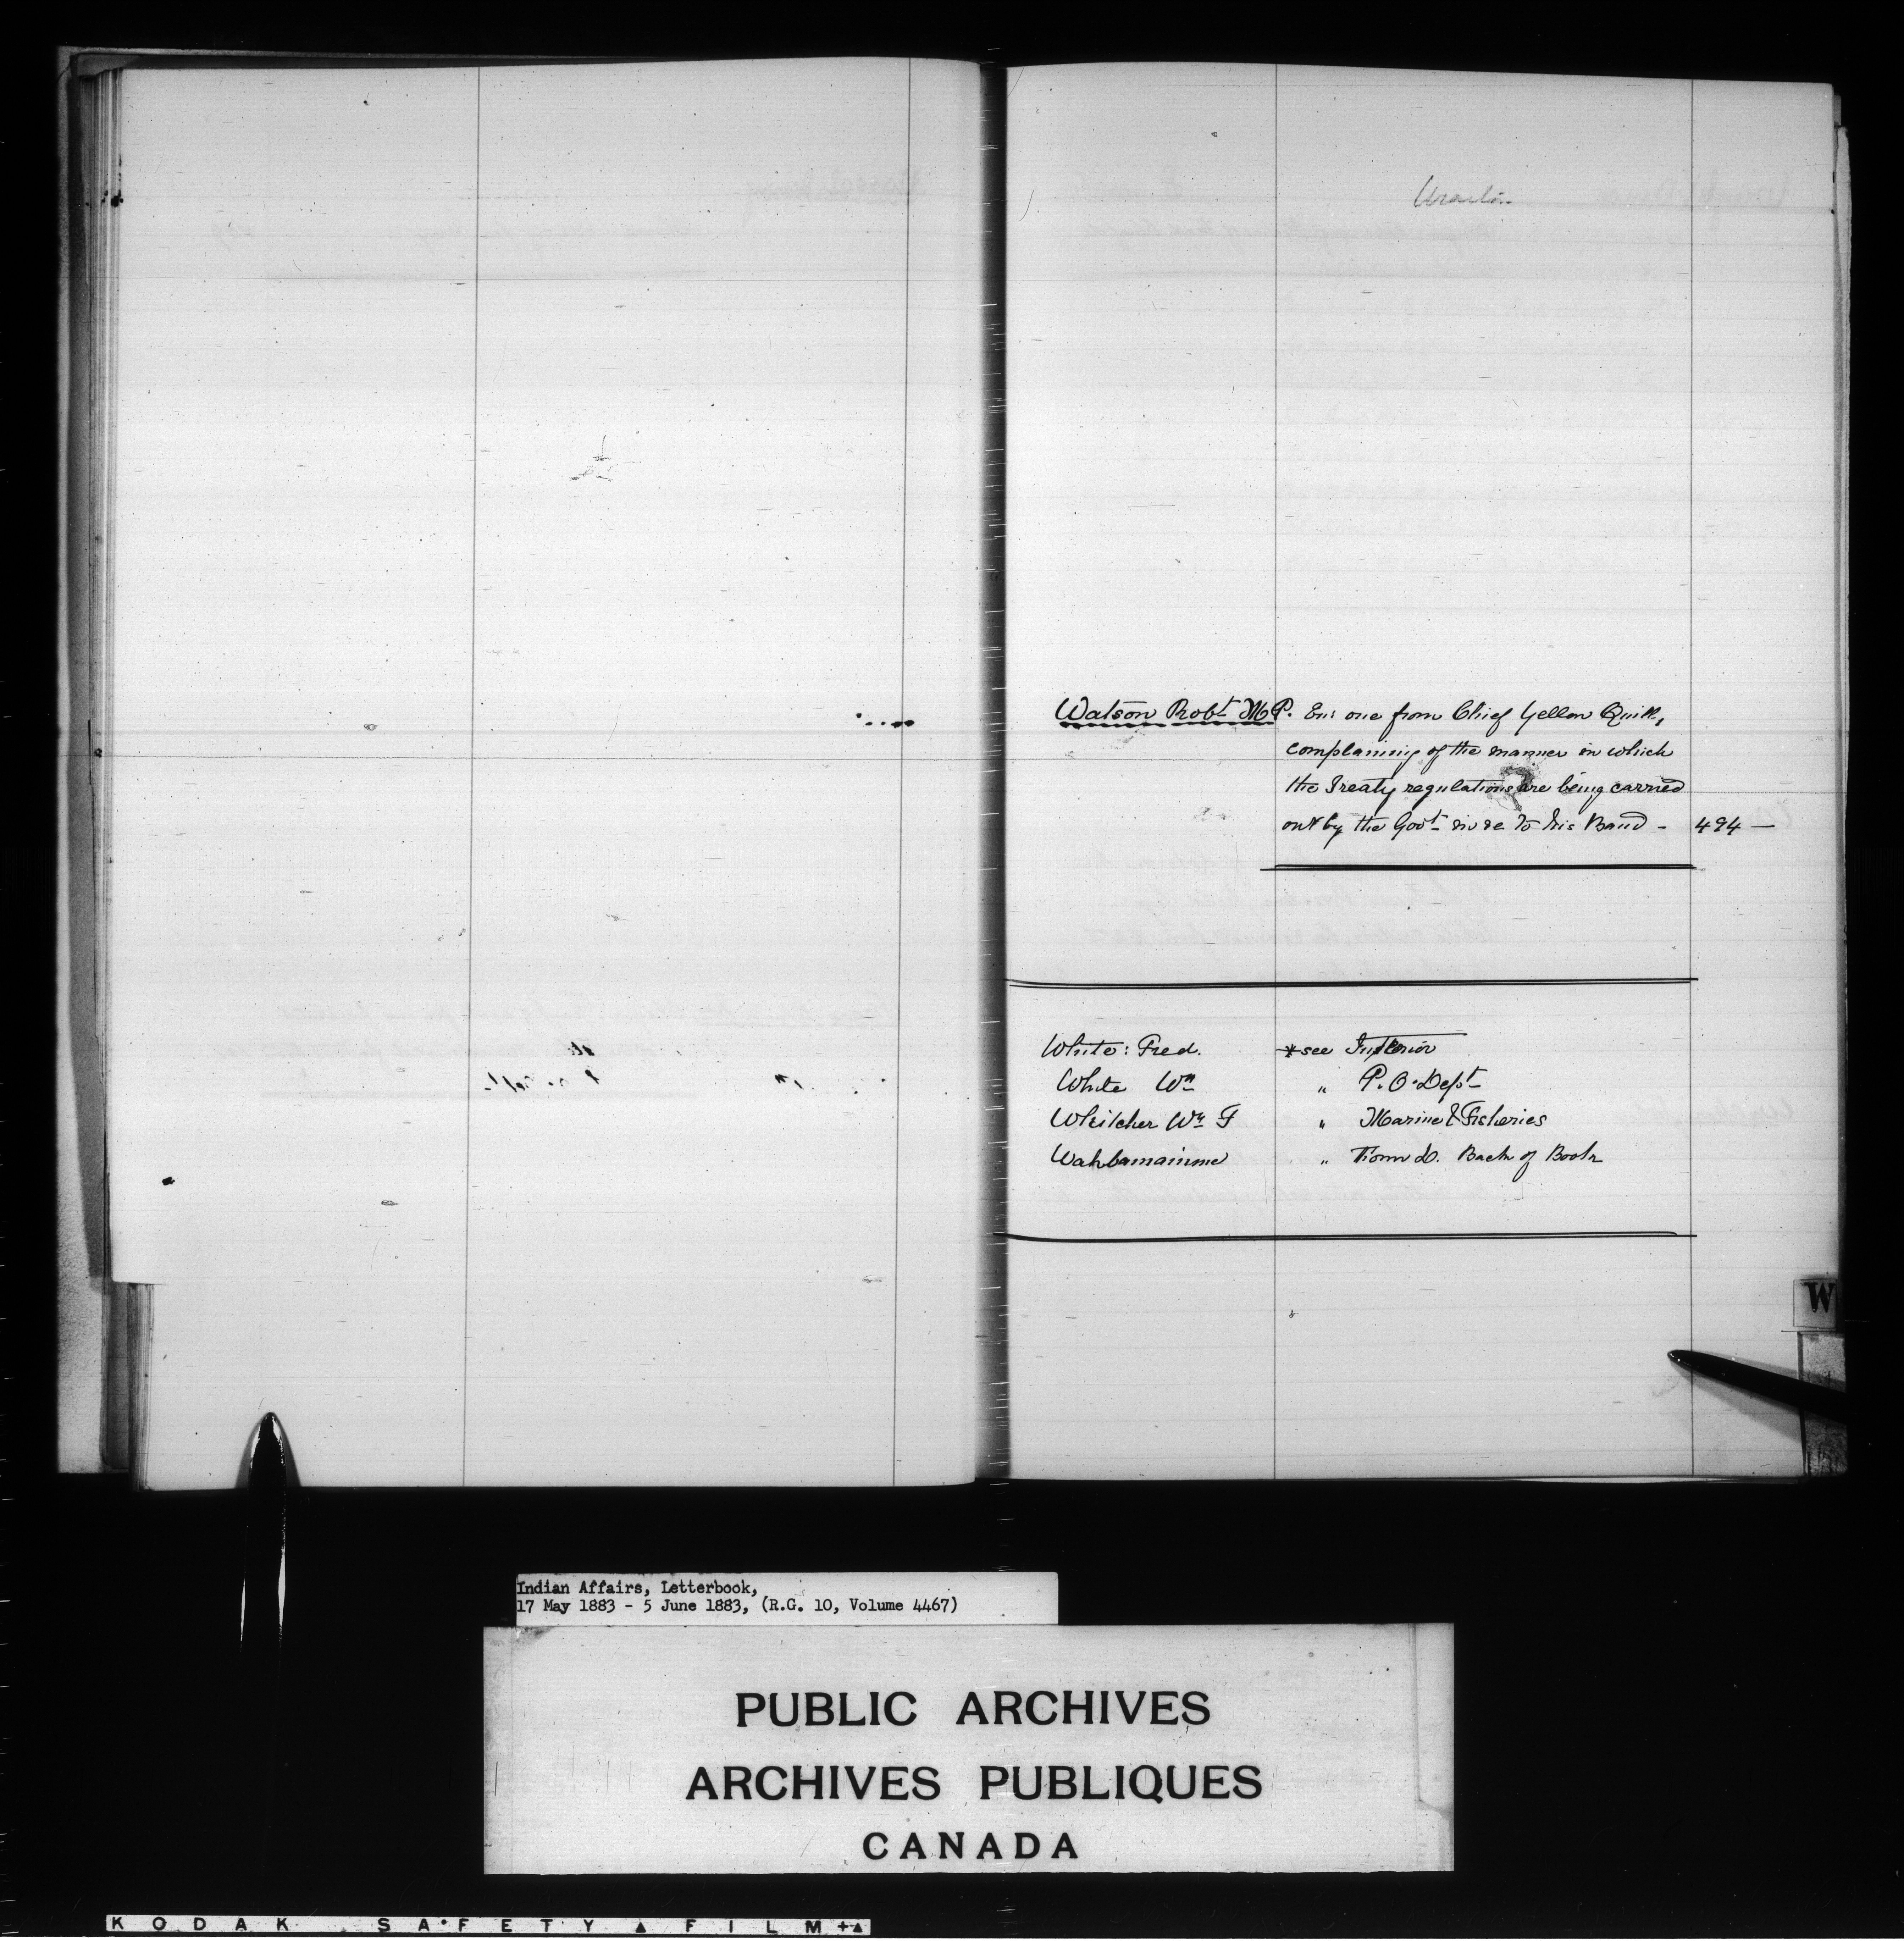 Watson Robt. M.P. Enc one from Chief Yellow Quill,
complaining of the manner in which
the Treaty regulations are being carried
out by the Govt. in re to his Band - 494 —
White: Fred. *see Interior
White Wm " P.O. Dept
Whitcher Wm F " Marine & Fisheries
Wahbamaimme " Back of Book
W
Indian Affairs, Letterbook,
17 May 1883 - 5 June 1883, (R.G. 10, Volume 4467)
PUBLIC ARCHIVES
ARCHIVES PUBLIQUES
CANADA
KODAK SAFETY FILM